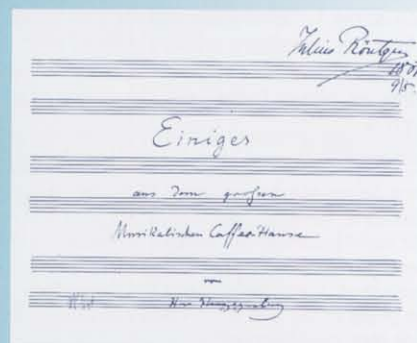 Julius Röntgen
Einiges
aus dem großen
Musikalischen Caffee-Hause
von